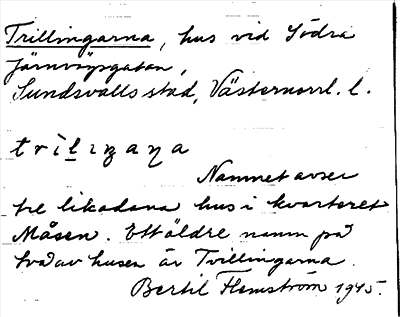 Trillingarna, hus vid Södra
Järnvägsgatan,
Sundsvalls stad, Västernorrl. l.
trilıŋaɳa
Namnet avser
tre likadana hus i kvarteret
Måsen. Ett äldre namn på
två av husen är Tvillingarna.
Bertil Flemström 1945.